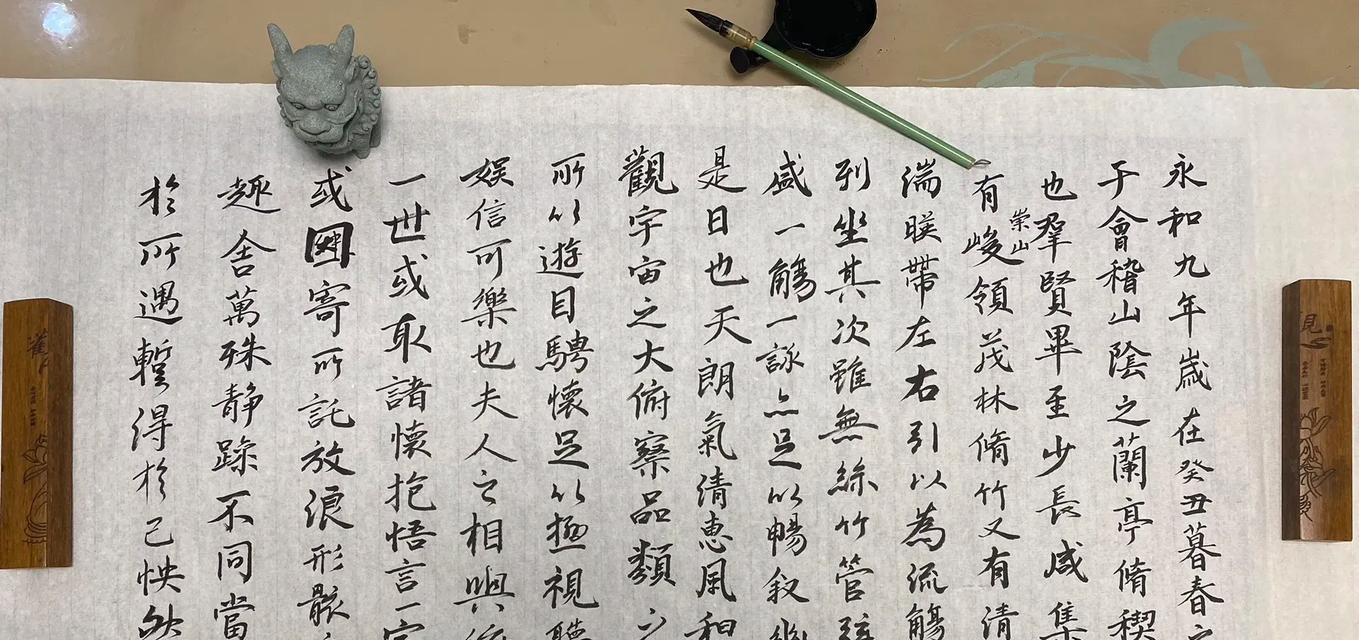 永和九年歲在癸丑暮春之
于會稽山陰之蘭亭脩稧
也羣賢畢至少長咸集
有崇山峻領茂林脩竹又有清
湍暎帶左右引以為流觴
列坐其次雖無絲竹管弦
盛一觴一詠亦足以暢叙幽
是日也天朗氣清惠風和
觀宇宙之大俯察品類之
所以遊目騁懷足以極視聽
娛信可樂也夫人之相與俯
一世或取諸懷抱悟言一室
或因寄所託放浪形骸
趣舍萬殊静躁不同當
於所遇蹔得於己怏然